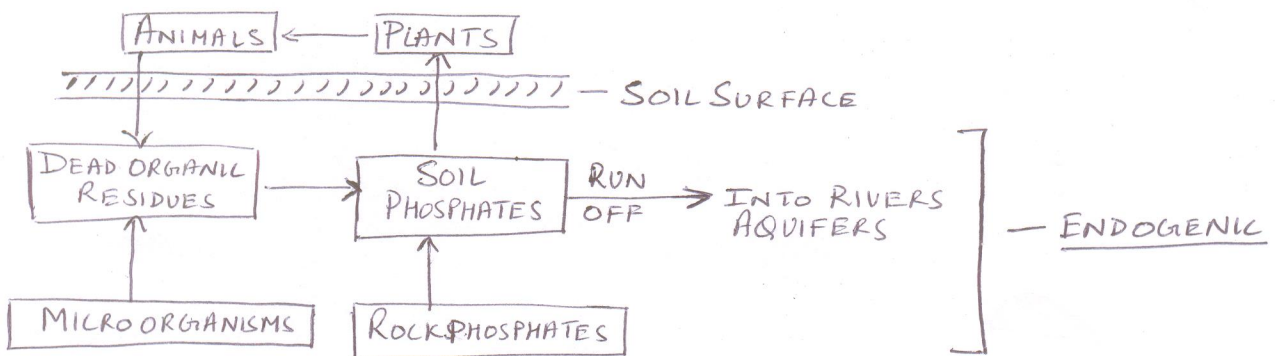 ANIMALS
PLANTS
SOIL SURFACE
DEAD ORGANIC
RESIDUES
SOIL
PHOSPHATES
RUN
OFF
INTO RIVERS
AQUIFERS
ENDOGENIC
MICROORGANISMS
ROCKPHOSPHATES